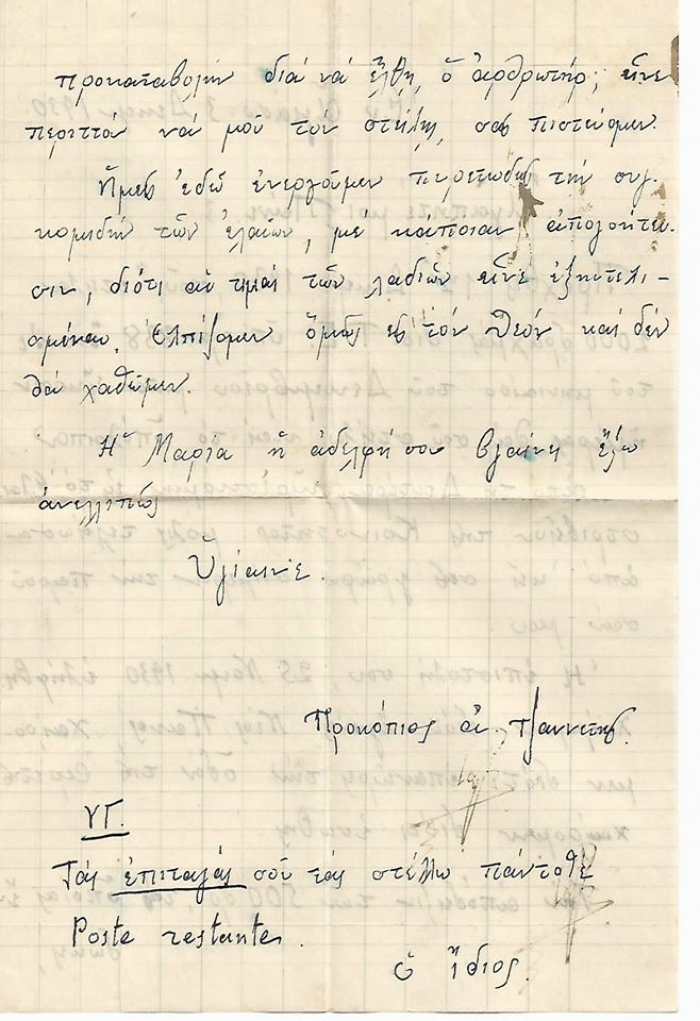 προκαταβολήν διά νά ἔλθῃ, ὁ ἀρθρωτήρ, εἶνε
περιττόν νά μοῦ τόν στείλῃς, σᾶς πιστεύομεν.
Ἡμεῖς ἐδῶ ἐνεργοῦμεν πυρετωδῶς τήν συγ-
κομιδήν τῶν ἐλαιῶν, μέ κάποιαν ἀπογοήτευ-
σιν, διότι αἱ τιμαί τῶν λαδιῶν εἶνε ἐξηυτελι-
σμέναι. Ἐλπίζομεν ὅμως εἰς τόν Θεόν καί δέν
θά χαθῶμεν.
Ἡ Μαρία ἡ ἀδελφή σου βγαίνει ἔξω
ἀνελλιπῶς
Ὑγίαινε.
Προκόπιος Τζαννετῆς.
ΥΓ.
Τάς ἐπιταγάς σοῦ τάς στέλλω πάντοθε
Poste restantes.
Ὁ ἴδιος.